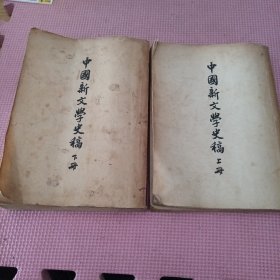 中國新文學史稿 下冊
中國新文學史稿 上冊